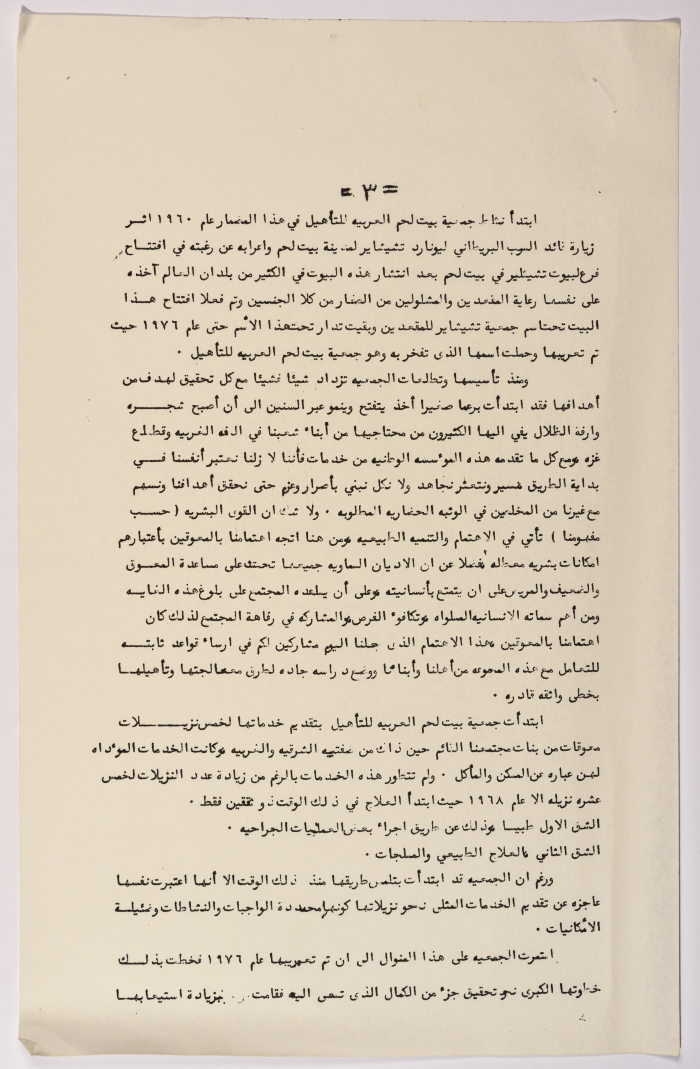 = ٣ =
ابتدأ نشاط جمعية بيت لحم العربيه للتأهيل في هذا المضمار عام ١٩٦٠ اثر
زيارة قائد السرب البريطاني ليونارد تشيشاير لمدينة بيت لحم واعرابه عن رغبته في افتتاح
فرع لبيوت تشيشلير في بيت لحم بعد انتشار هذه البيوت في الكثير من بلدان العالم آخذه
على نفسها رعاية المقعدين والمشلولين من الصغار من كلا الجنسين وتم فعلا افتتاح هذا
البيت تحت اسم جمعية تشيشاير للمقعدين وبقيت تدار تحت هذا الأسم حتى عام ١٩٧٦ حيث
تم تعريبها وحملت اسمها الذى تفخر به وهو جمعية بيت لحم العربيه للتأهيل ٠
ومنذ تأسيسها وتطلعات الجمعيه تزداد شيئا فشيئا مع كل تحقيق لهدف من
أهدافها فقد ابتدأت برعما صغيرا أخذ يتفتح وينمو عبر السنين الى أن أصبح شجره
وارفة الظلال يفي اليها الكثيرون من محتاجيها من أبناء شعبنا في الضفه الغربيه وقطاع
غزه ومع كل ما تقدمه هذه المؤسسه الوطنيه من خدمات فأننا لا زلنا نعتبر أنفسنا في
بداية الطريق نسير ونتعثر نجاهد ولا نكل نبني بأصرار وعزم حتى نحقق أهدافنا ونسهم
مع غيرنا من المخلصين في الوثبه الحضاريه المطلوبه ٠ ولا شك ان القوى البشريه ( حسب
مفهومنا ) تأتي في الاهتمام والتنميه الطبيعيه ومن هنا اتجه اهتمامنا بالمعوقين بأعتبارهم
امكانات بشريه معطله فضلا عن ان الاديان السماويه جميعها تحث على مساعدة المعوق
والضعيف والمريض على ان يتمتع بأنسانيته وعلى أن يساعده المجتمع على بلوغ هذه الغايه
ومن أهم سماته الانسانيه المساواه وتكافؤ الفرص والمشاركه في رفاهة المجتمع لذلك كان
اهتمامنا بالمعوقين وهذا الاهتمام الذى جعلنا اليوم مشاركين لكم في ارساء قواعد ثابته
للتعامل مع هذه المجموعه من أهلنا وأبنائنا ووضع دراسه جاده لطرق معالجتها وتأهيلها
بخطى واثقه قادره ٠
ابتدأت جمعية بيت لحم العربيه للتأهيل بتقديم خدماتها لخمس نزيلات
معوقات من بنات مجتمعنا النائم حين ذاك من ضفتيه الشرقيه والغربيه وكانت الخدمات المؤداه
لهن عباره عن المسكن والمأكل ٠ ولم تتطور هذه الخدمات بالرغم من زيادة عدد النزيلات لخمس
عشره نزيله الا عام ١٩٦٨ حيث ابتدأ العلاج في ذلك الوقت ذو شقين فقط ٠
الشق الاول طبيا وذلك عن طريق اجراء بعض العمليات الجراحيه ٠
الشق الثاني بالعلاج الطبيعي والمعلجات ٠
ورغم ان الجمعيه قد ابتدأت بتلمس طريقها منذ ذلك الوقت الا أنها اعتبرت نفسها
عاجزه عن تقديم الخدمات المثلى نحو نزيلاتها كونها محدودة الواجبات والنشاطات وضئيلة
الأمكانيات ٠
استمرت الجمعيه على هذا المنوال الى ان تم تعريبها عام ١٩٧٦ فخطت بذلك
خطوتها الكبرى نحو تحقيق جزء من الكمال الذى تسعى اليه فقامت بزيادة استيعابها